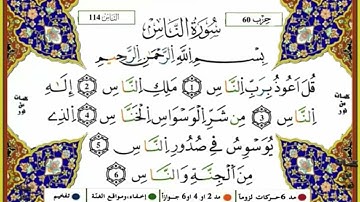 الناس 114
سُورَةُ النَّاسِ
حزب 60
بِسْمِ اللَّهِ الرَّحْمَٰنِ الرَّحِيمِ
قُلْ أَعُوذُ بِرَبِّ النَّاسِ (1) مَلِكِ النَّاسِ (2) إِلَٰهِ
النَّاسِ (3) مِن شَرِّ الْوَسْوَاسِ الْخَنَّاسِ (4) الَّذِي
يُوَسْوِسُ فِي صُدُورِ النَّاسِ (5)
مِنَ الْجِنَّةِ وَالنَّاسِ (6)
كلمات من نور
كلمات من نور
مد 6 حركات لزوماً
مد 2 أو 4 أو 6 جوازاً
إخفاء، ومواقع الغنة
تفخيم